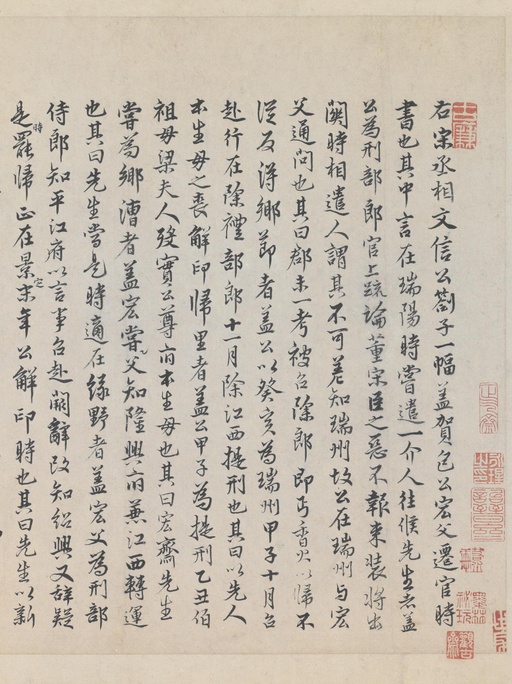 右宋丞相文信公劄子一幅蓋賀包公宏父遷官時
書也其中言在瑞陽時嘗遣一介人往候先生者蓋
公為刑部郎官上疏論董宋臣之惡不報束裝將出
闕時相遣人謂其不可差知瑞州故公在瑞州與宏
父通問也其曰郡未一考被召除郎即丐香火以歸不
從反得鄉節者蓋公以癸亥為瑞州甲子十月召
赴行在除禮部郎十一月除江西提刑也其曰以先人
本生母之喪解印歸里者蓋公甲子為提刑乙丑伯
祖母梁夫人歿實公尊府本生母也其曰宏齋先生
嘗為鄉漕者蓋宏父嘗知隆興府兼江西轉運
也其曰先生當是時適在綠野者蓋宏父為刑部
侍郎知平江府以言事召赴闕辭改知紹興又辭疑
是時罷歸正在景定末年公解印時也其曰先生以新